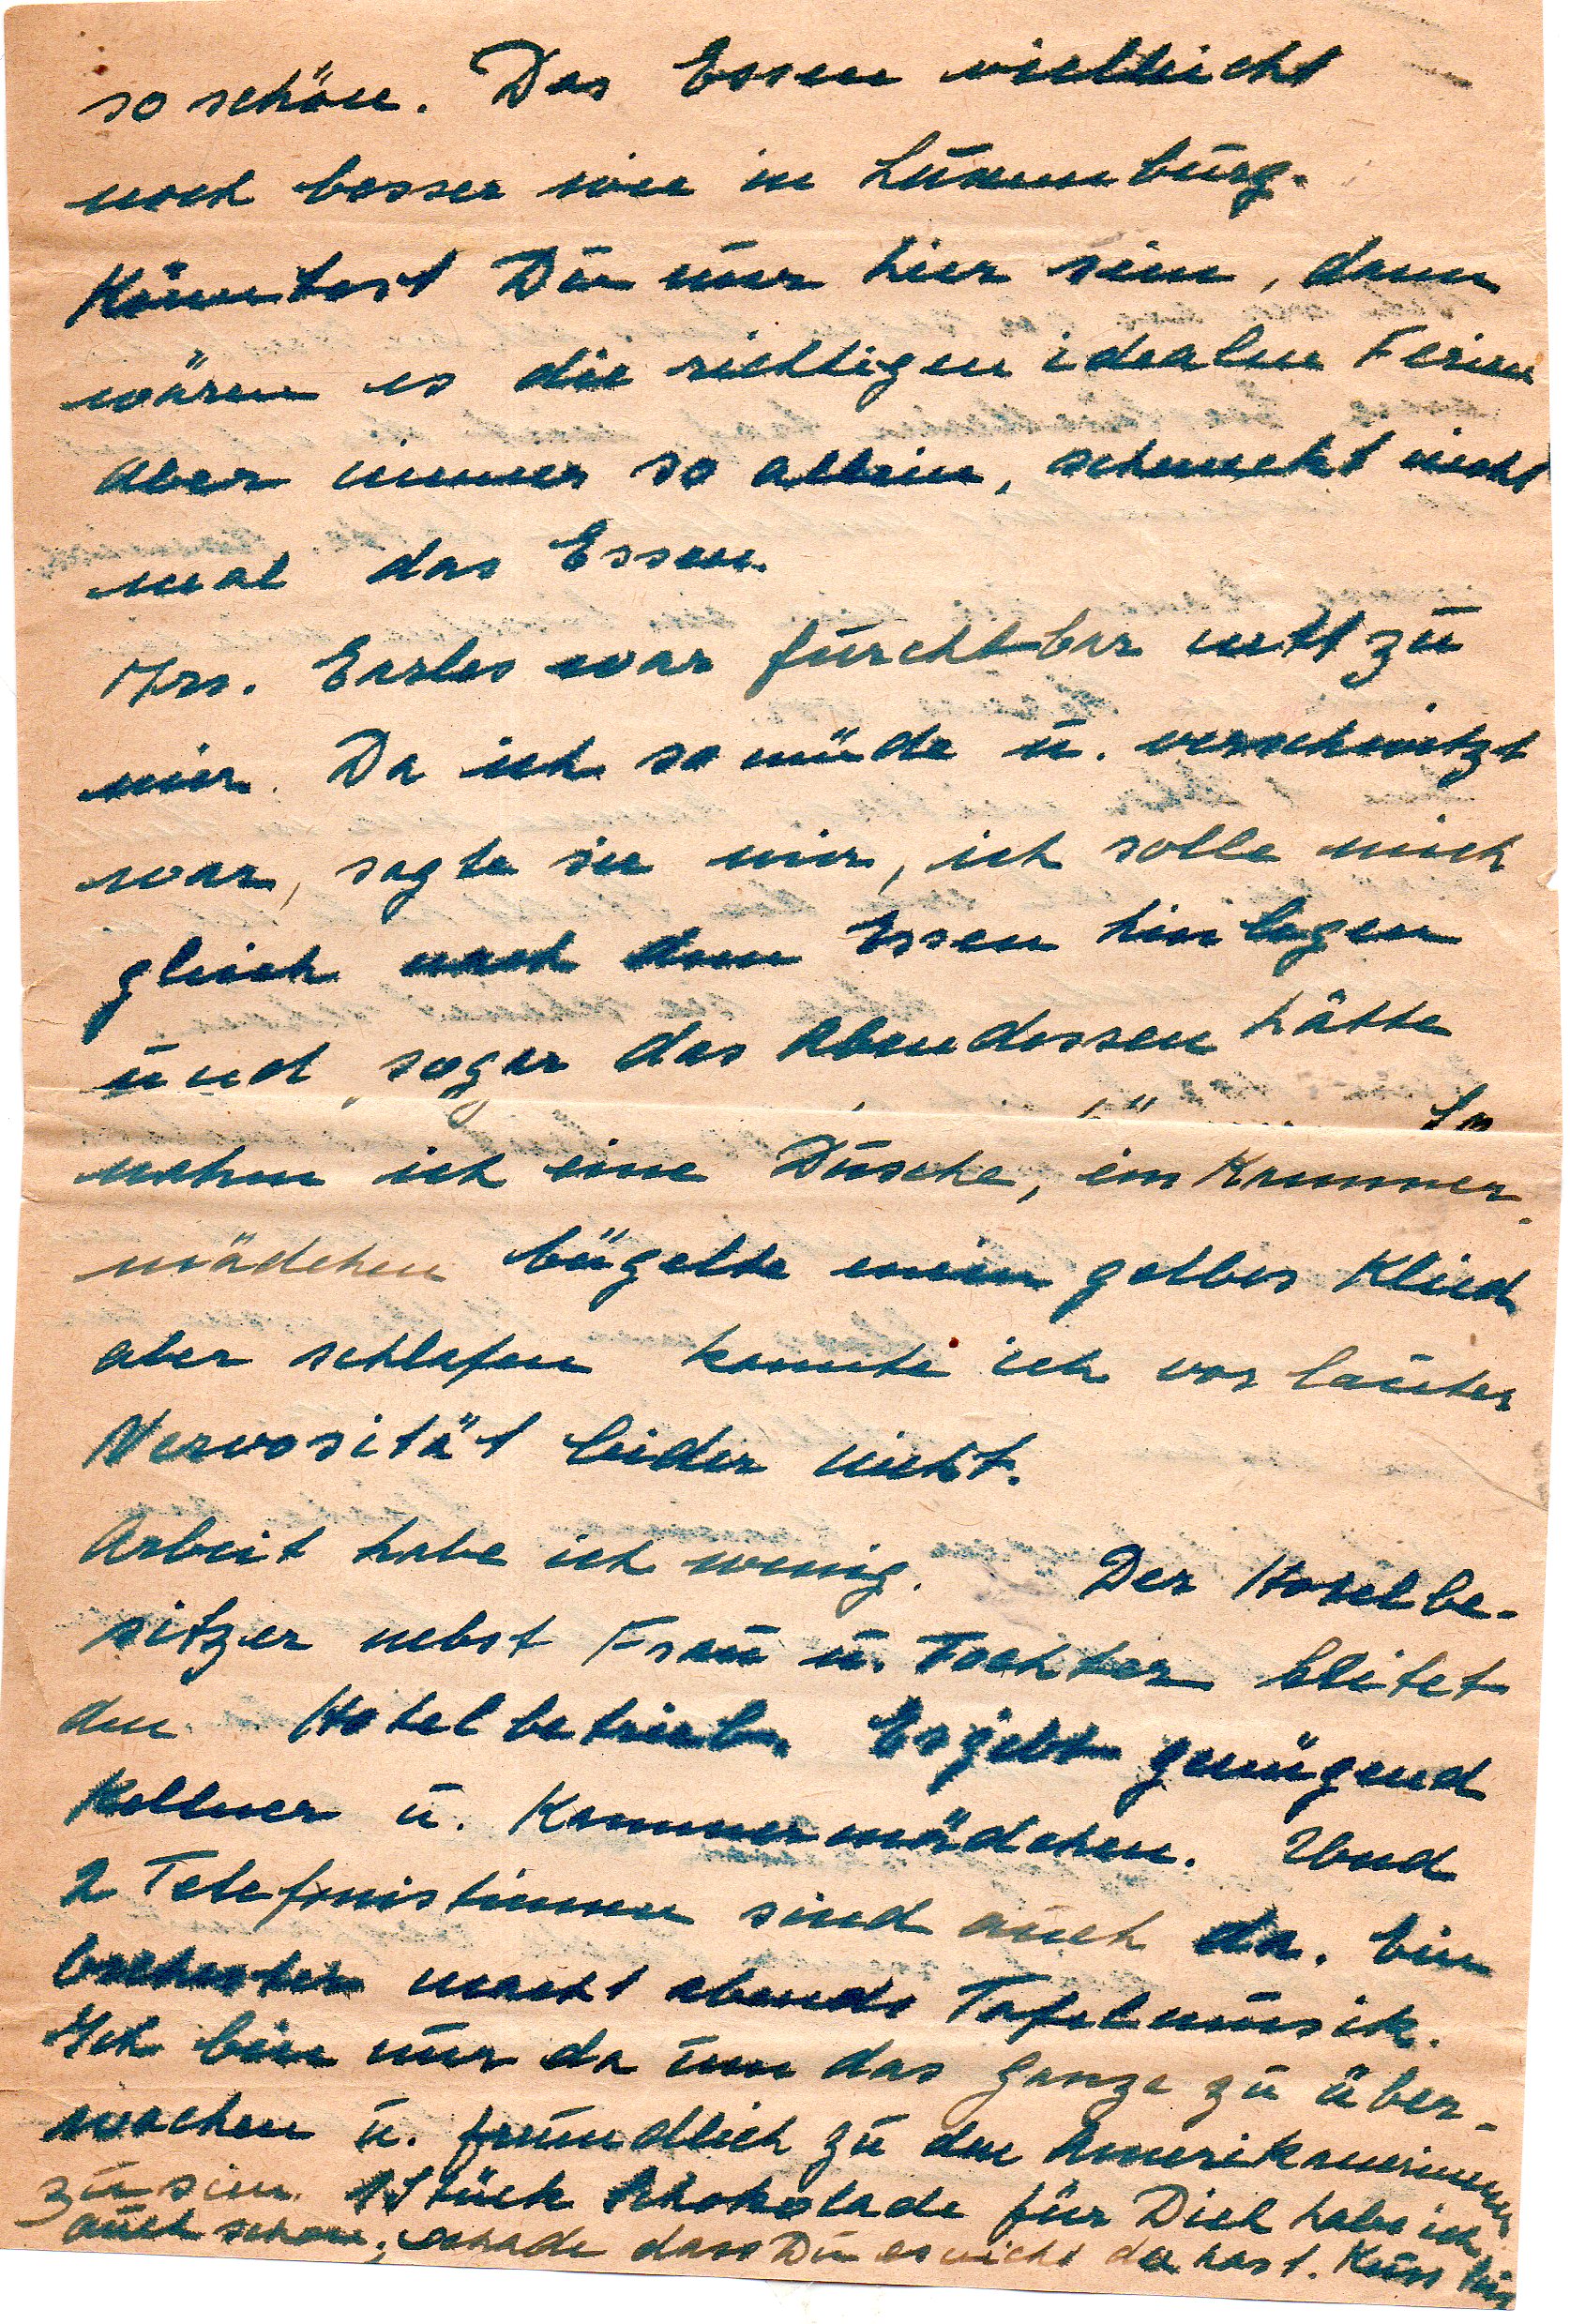 so schön. Das Essen vielleicht
noch besser wie in Luxemburg.
Könntest Du nur hier sein, dann
wären es die richtigen idealen Ferien
aber immer so allein, schmeckt nicht
mal das Essen.
Mrs. Earles war furchtbar nett zu
mir. Da ich so müde u. verschwitzt
war, sagte sie mir, ich solle mich
gleich nach dem Essen hinlegen
und sogar das Abendessen hätte
nahm ich eine Dusche, ein Kammer-
mädchen bügelte mein gelbes Kleid
aber schlafen konnte ich vor lauter
Nervosität leider nicht.
Arbeit habe ich wenig. Der Hotelbe-
sitzer nebst Frau u. Tochter leitet
den Hotelbetrieb. Es gibt genügend
Kellner u. Kammermädchen. Und
2 Telefonistinnen sind auch da. Ein
Orchester macht abends Tafelmusik.
Ich bin nur da um das ganze zu über-
wachen u. freundlich zu den Amerikanerinnen
zu sein. 1 Stück Schokolade für Dich habe ich
auch schon, schade dass Du es nicht da hast. Kuss